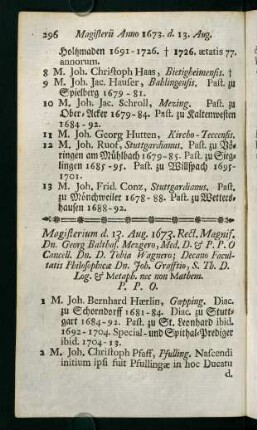 296 Magisterii Anno 1673. d. 13. Aug.
Holtzmaden 1691-1726. † 1726. ætatis 77.
annorum.
8 M. Joh. Christoph Haas, Bietigheimensis. †
9 M. Joh. Jac. Hauser, Bahlingensis. Past. zu
Spielberg 1679-81.
10 M. Joh. Jac. Schroll, Mezing. Past. zu
Ober-Acker 1679-84. Past. zu Kaltenwesten
1684-92.
11 M. Joh. Georg Hutten, Kircho-Teccensis.
12 M. Joh. Ruof, Stuttgardianus. Past. zu Bö-
ringen am Mühlbach 1679-85. Past. zu Sieg-
lingen 1685-95. Past. zu Willspach 1695-
1701.
13 M. Joh. Frid. Conz, Stuttgardianus. Past.
zu Mönchweiler 1678-88. Past. zu Wetters-
hausen 1688-92.
Magisterium d. 13. Aug. 1673. Rect. Magnif.
Dn. Georg Balthas. Mezgero, Med. D. & P. P. O
Cancell. Dn. D. Tobia Wagnero; Decano Facul-
tatis Philosophicæ Dn. Joh. Grafftio, S. Th. D.
Log. & Metaph. nec non Mathem.
P. P. O.
1 M. Joh. Bernhard Hærlin, Gœpping. Diac.
zu Schorndorff 1681-84. Diac. zu Stutt-
gart 1684-92. Past. zu St. Leonhard ibid.
1692-1704. Special- und Spithal-Prediger
ibid. 1704-13.
2 M. Joh. Christoph Pfaff, Pfulling. Nascendi
initium ipsi fuit Pfullingæ in hoc Ducatu
d.